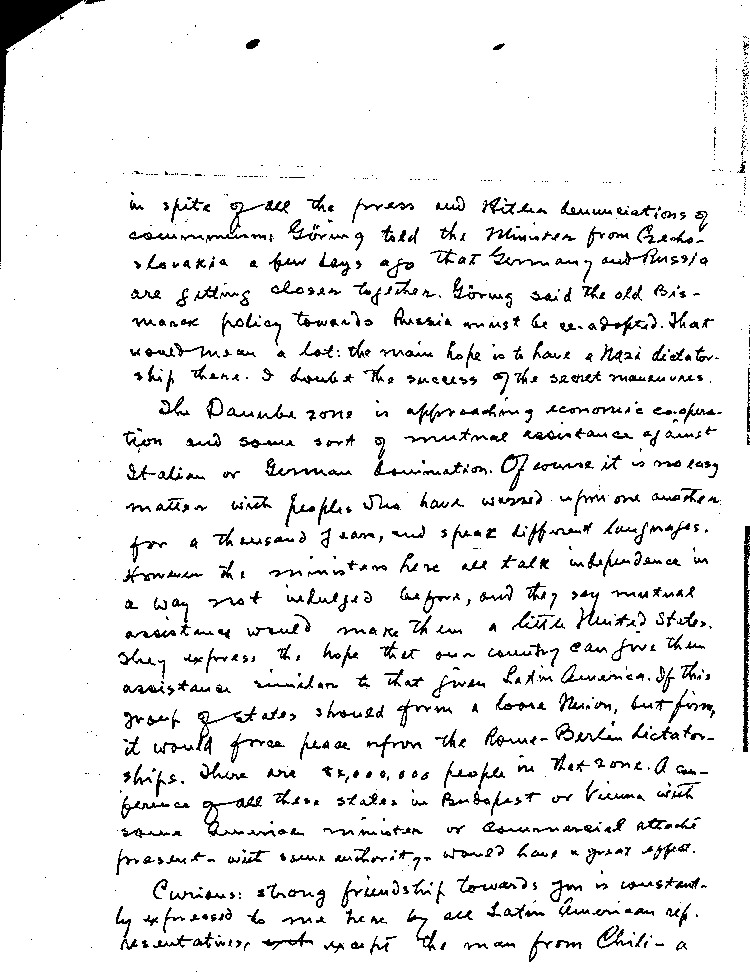 in spite of all the press and Hitler denunciations of
communism, Göring told the Minister from Czecho-
slovakia a few days ago that Germany and Russia
are getting closer together. Göring said the old Bis-
marck policy towards Russia must be re-adopted. That
would mean a lot: the main hope is to have a Nazi dictator-
ship there. I doubt the success of the secret maneuvres.
The Danube zone is approaching economic coopera-
tion and some sort of mutual assistance against
Italian or German domination. Of course it is no easy
matter with peoples who have warred upon one another
for a thousand years, and speak different languages.
However the ministers here all talk independence in
a way not indulged before, and they say mutual
assistance would make them a little United States.
They express the hope that our country can give them
assistance similar to that given Latin America. If this
group of states should form a loose Union, but firm,
it would force peace upon the Rome-Berlin dictator-
ships. There are 85,000,000 people in that zone. A con-
ference of all these states in Budapest or Vienna with
some American minister or commercial attaché
present - with some authority - would have a great effect.
Curious: strong friendship towards you is constant-
ly expressed to me here by all Latin American rep-
resentatives, except the man from Chili - a